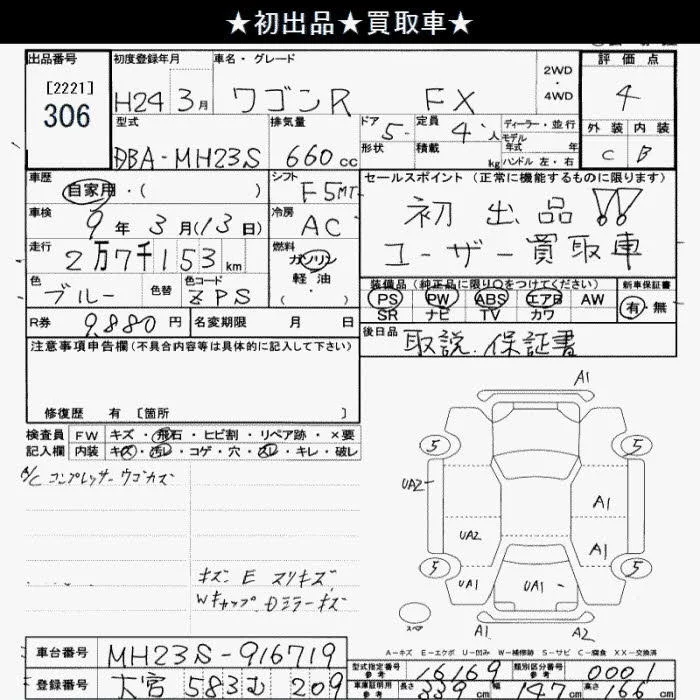 ★初出品★買取車★
出品番号 初度登録年月 車名・グレード 評価点
[2221]
306
H24 3月 ワゴンR FX 2WD・4WD 4
型式 排気量 ドア 定員 ディーラー・並行 外装 内装
DBA-MH23S 660cc 5 4人 モデル年式 年 C B
形状 積載 kg ハンドル 左・右
車歴 シフト セールスポイント(正常に機能するものに限ります)
自家用・( ) F5MT 初出品!!
車検 9年3月(13日) 冷房 AC ユーザー買取車
走行 2万7千153km 燃料 ガソリン 軽油・( )
色 ブルー 色替 色コード ZPS
装備品(純正品に限り○をつけてください) 新車保証書
PS PW ABS エアB AW 有・無
SR ナビ TV カワ
R券 9880円 名変期限 月 日
後日品 取説.保証書
注意事項申告欄(不具合内容等は具体的に記入して下さい)
修復歴 有 [箇所 ]
検査員 FW キズ・飛石・ヒビ割・リペア跡・×要
記入欄 内装 キズ・汚レ・コゲ・穴・スレ・キレ・破レ
A/C コンプレッサー ウゴカズ
キズ E スリキズ
Wキャップ Dミラーキズ
A1
5 5
UA2 A1
UA2 A1
5 5
UA1 UA1
スペア
A1 A2
A-キズ E-エクボ U-凹み W-補修跡 S-サビ C-腐食 XX-交換済
車台番号 MH23S-916719
型式指定番号 参考 16169 類別区分番号 参考 0001
登録番号 大宮 583む 209
車庫証明用 参考 長さ 339cm 幅 147cm 高さ 166cm